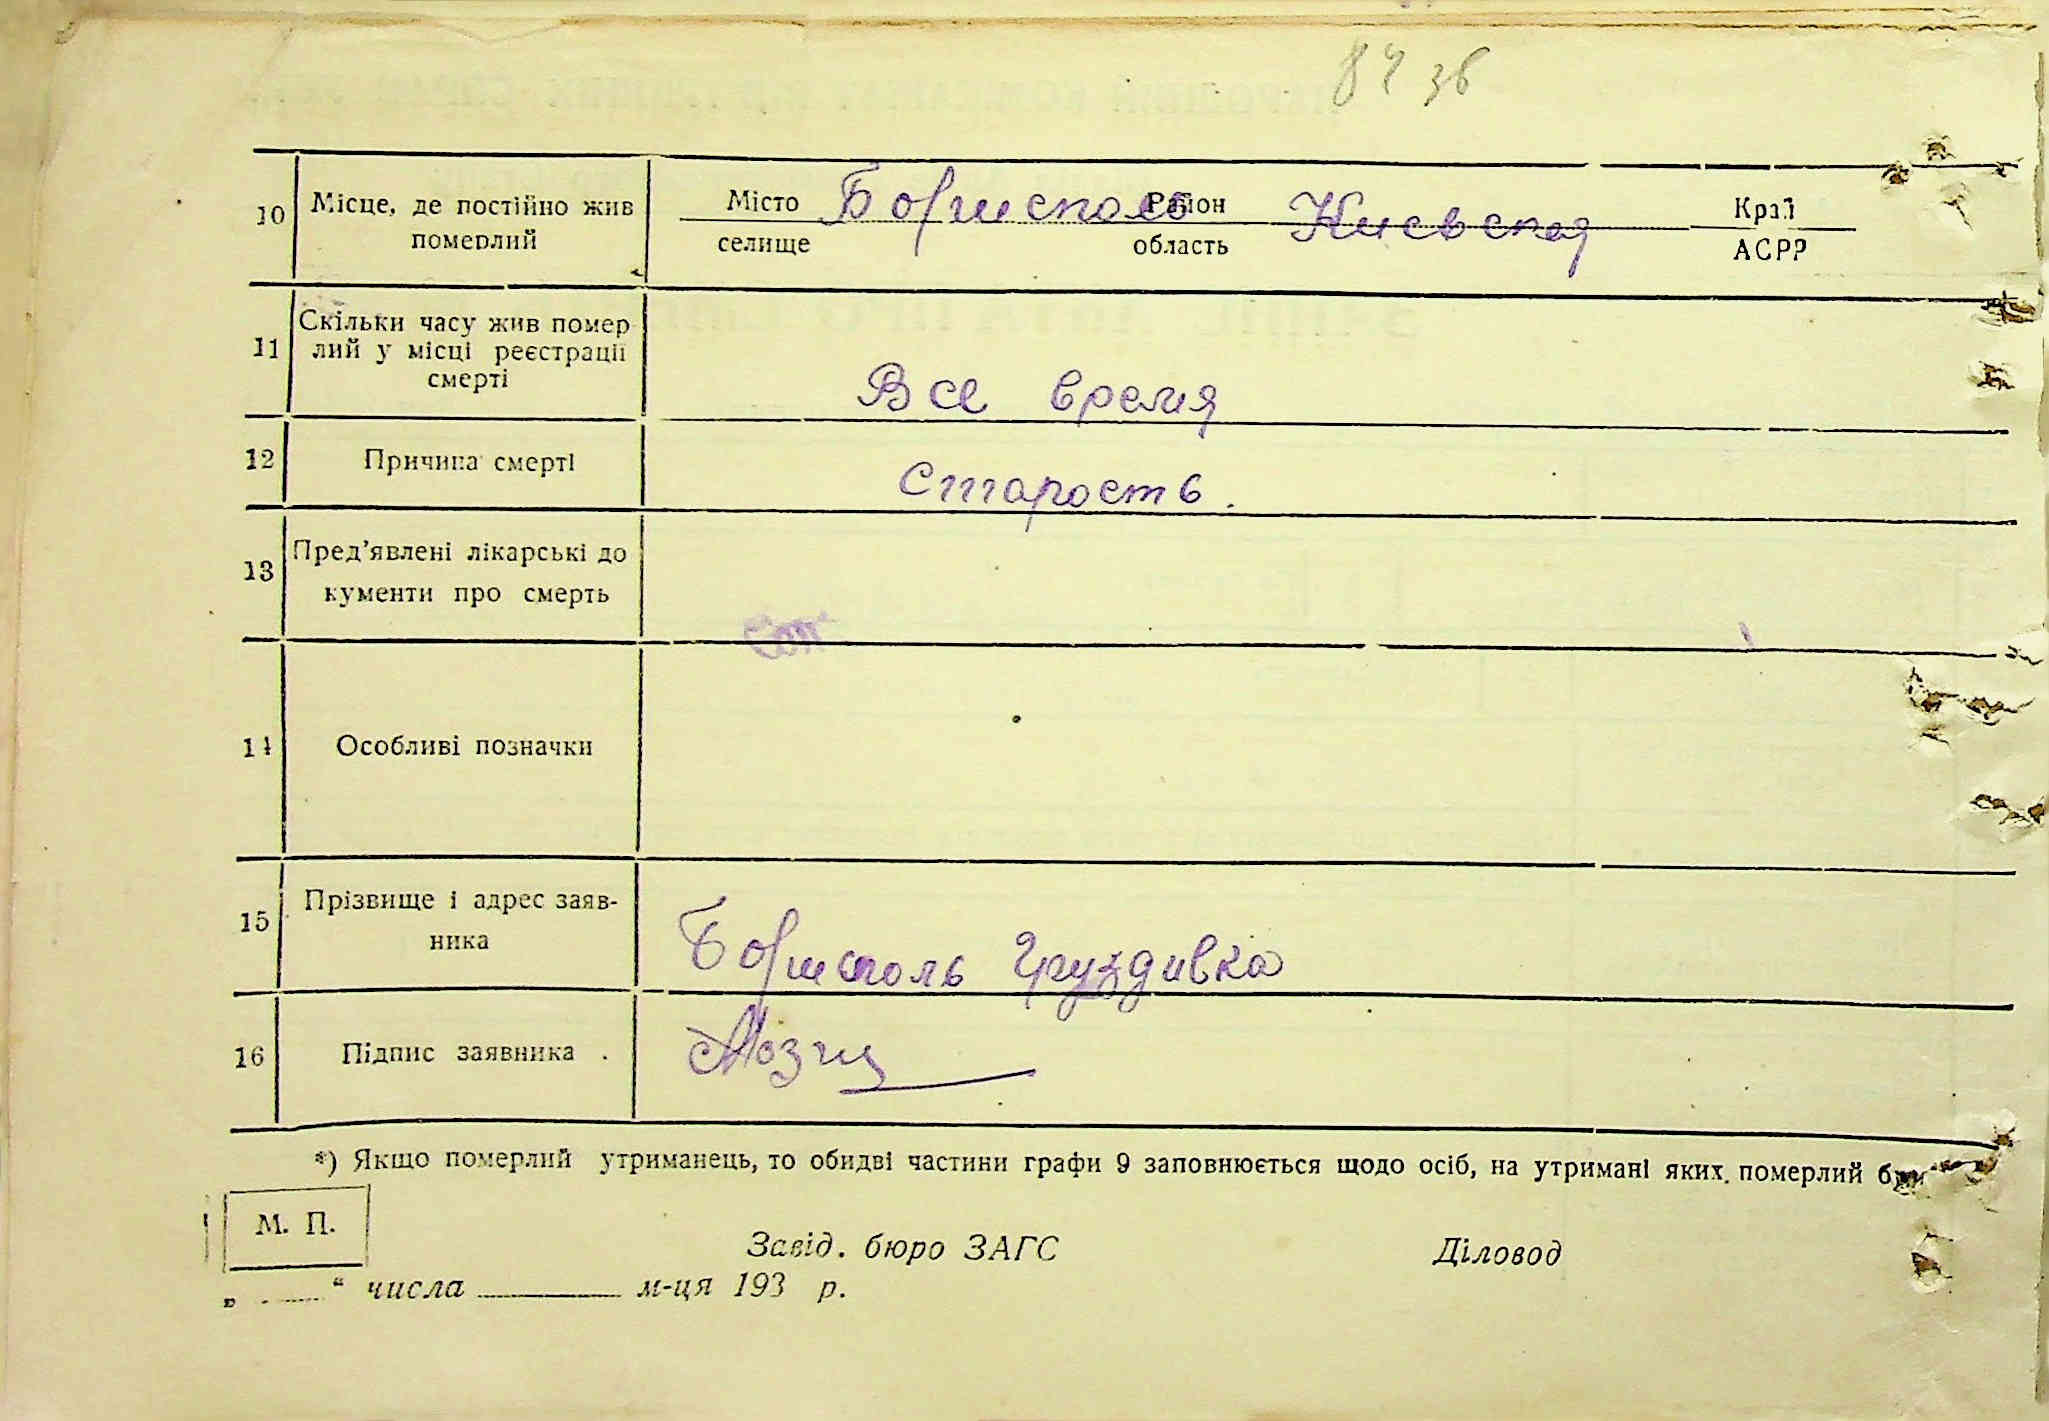 84 зв
10 Місце, де постійно жив Місто Борисполь Район Киевская Край
померлий селище область АСРР
11 Скільки часу жив помер
лий у місці реєстрації
смерті Все время
12 Причина смерті Старость.
13 Пред’явлені лікарські до
кументи про смерть
14 Особливі позначки
15 Прізвище і адрес заяв-
ника Борисполь Груздивка
16 Підпис заявника .
*) Якщо померлий утриманець, то обидві частини графи 9 заповнюється щодо осіб, на утримані яких померлий
М. П.
Завід. бюро ЗАГС Діловод
„ ..... “ числа ......... м-ця 193 р.